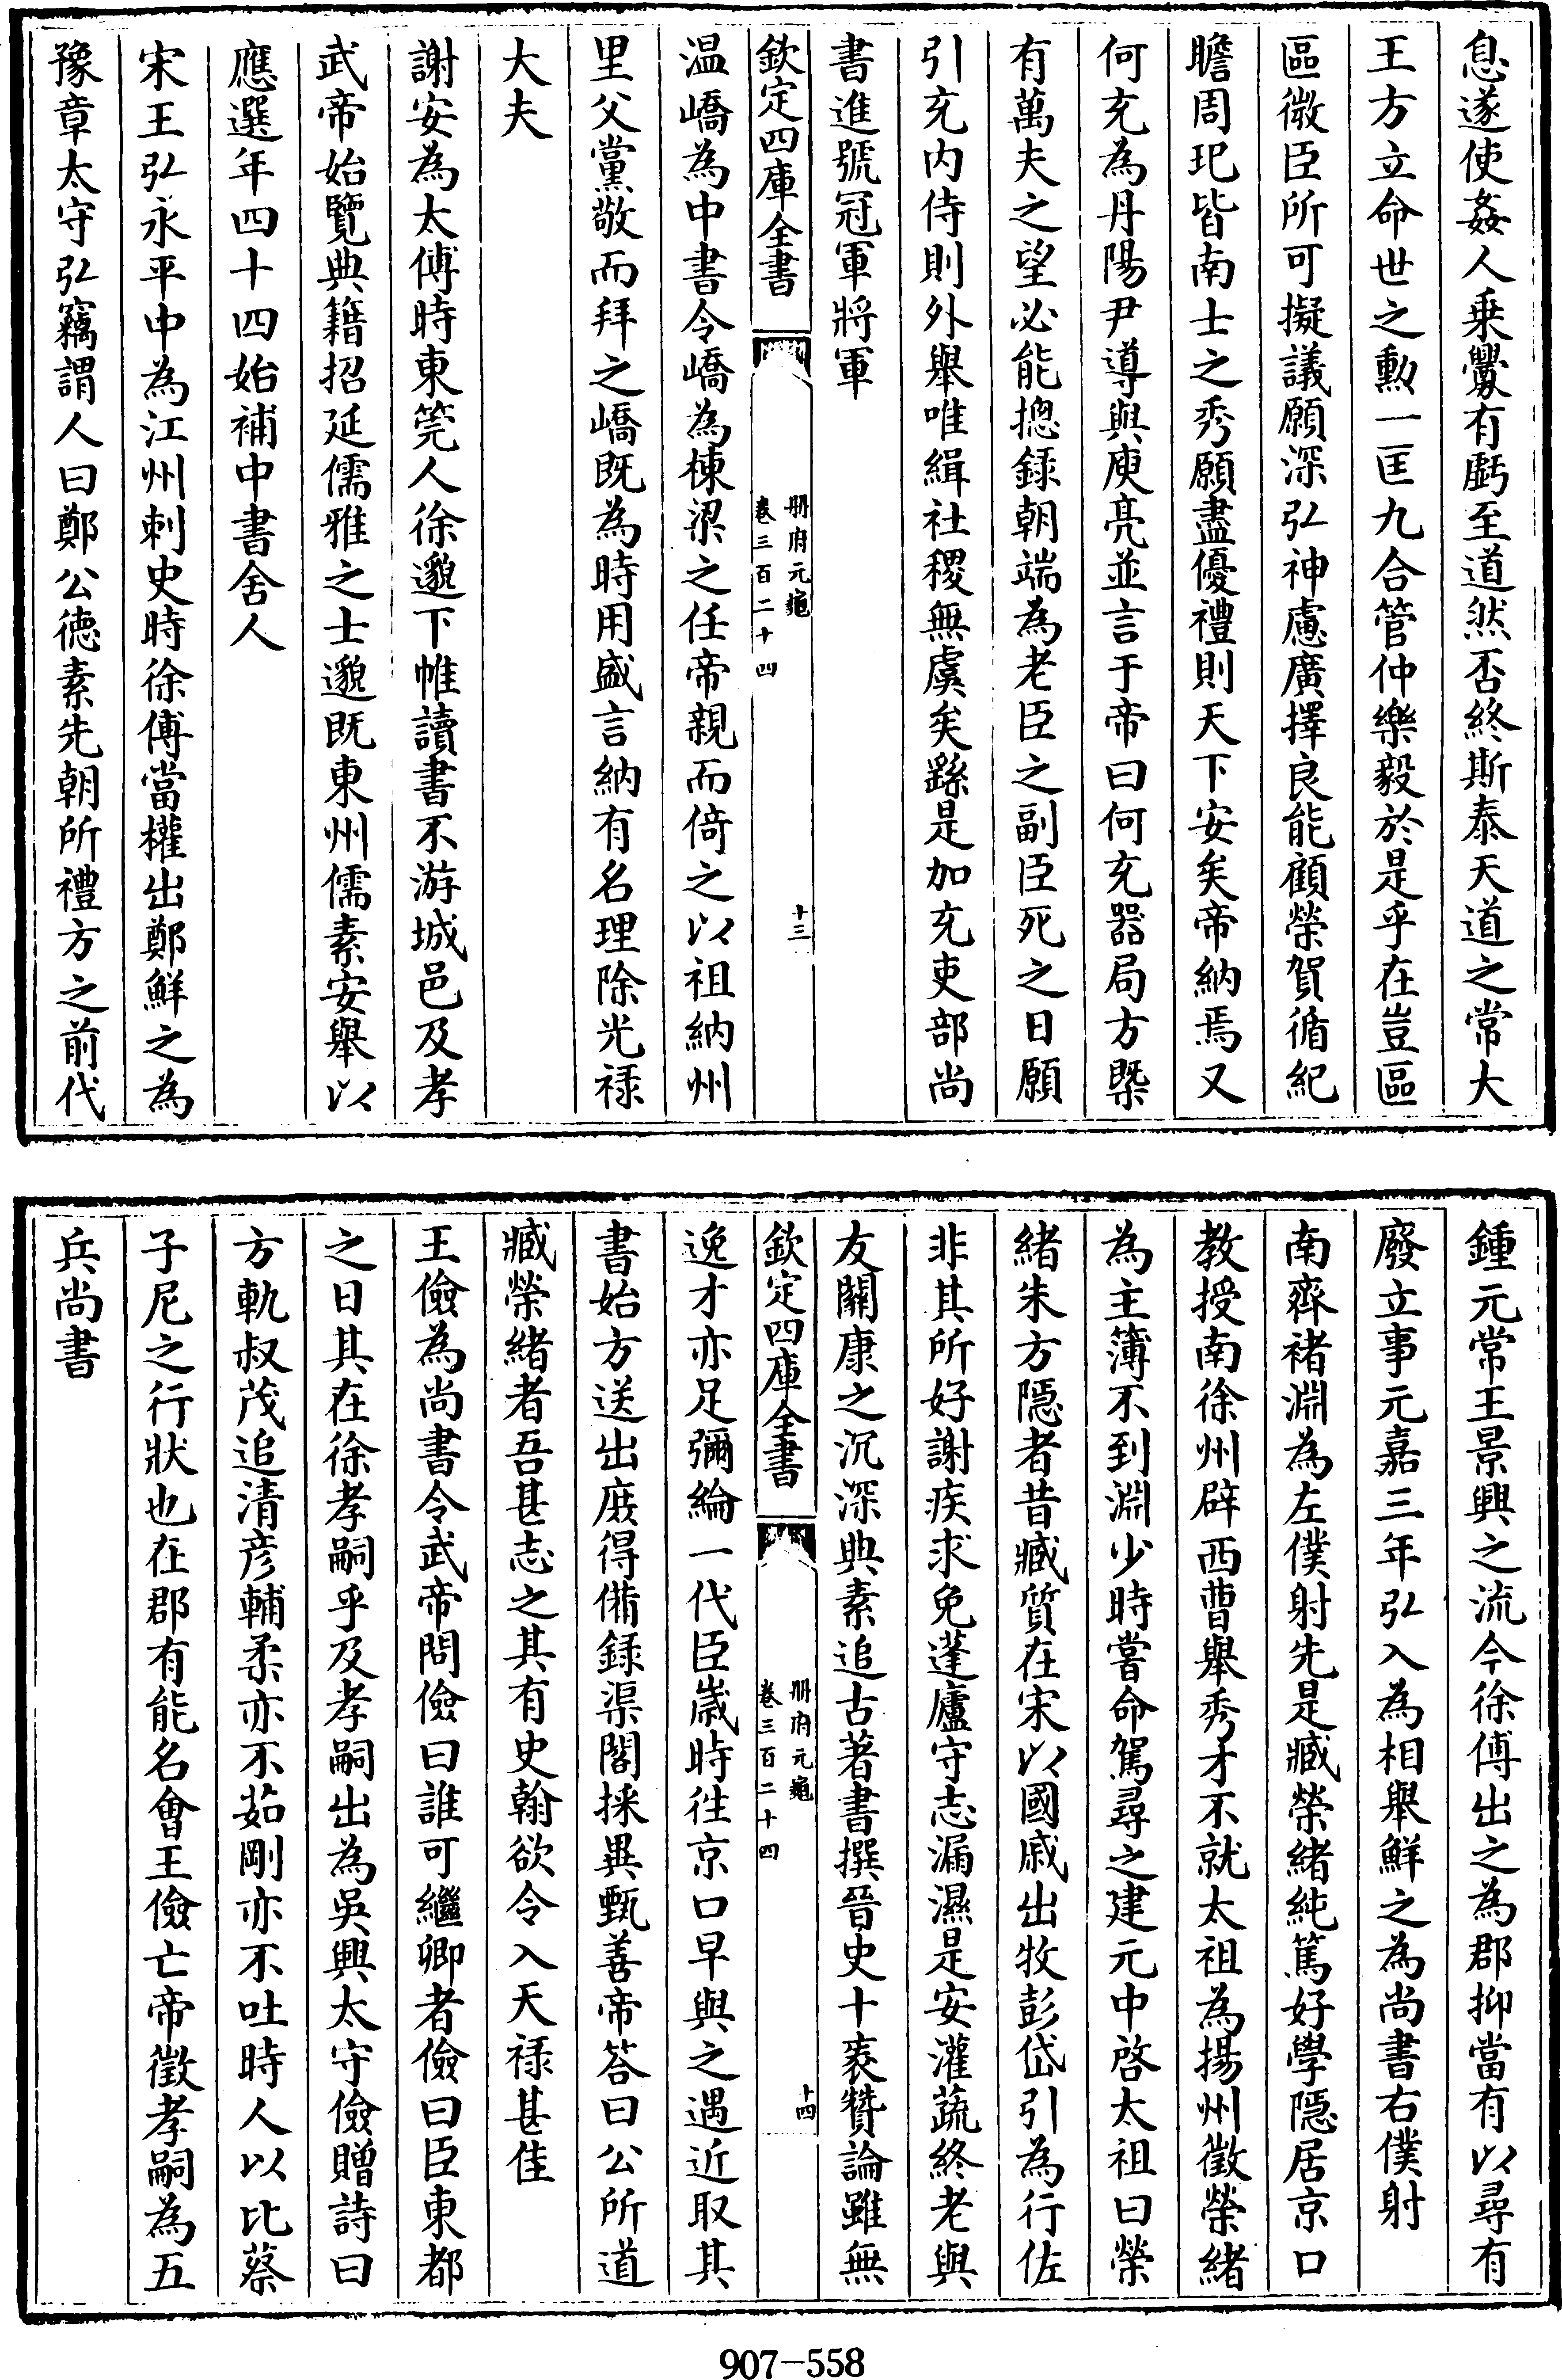 息遂使姦人乗釁有虧至道然否終斯泰天道之常大
王方立命世之勲一匡九合管仲樂毅於是乎在豈區
區微臣所可擬議願深弘神慮廣擇良能顧榮賀循紀
瞻周玘皆南士之秀願盡優禮則天下安矣帝納焉又
何充為丹陽尹導與庾亮並言于帝曰何充器局方槩
有萬夫之望必能摠錄朝端為老臣之副臣死之日願
引充内侍則外舉唯緝社稷無虞矣繇是加充吏部尚
書進號冠軍將軍
欽定四庫全書
冊府元龜
卷三百二十四
十三
温嶠為中書令嶠為棟梁之任帝親而倚之以祖納州
里父黨敬而拜之嶠既為時用盛言納有名理除光禄
大夫
謝安為太傅時東筦人徐邈下帷讀書不游城邑及孝
武帝始覽典籍招延儒雅之士邈既東州儒素安舉以
應選年四十四始補中書舍人
宋王弘永平中為江州刺史時徐傅當權出鄭鮮之為
豫章太守弘竊謂人曰鄭公德素先朝所禮方之前代
鍾元常王景興之流今徐傅出之為郡抑當有以尋有
廢立事元嘉三年弘入為相舉鮮之為尚書右僕射
南齊褚淵為左僕射先是臧榮緒純篤好學隠居京口
教授南徐州辟西曹舉秀才不就太祖為揚州徵榮緒
為主簿不到淵少時嘗命駕尋之建元中啓太祖曰榮
緒朱方隠者昔臧質在宋以國戚出牧彭岱引為行佐
非其所好謝疾求免蓬廬守志漏濕是安灌蔬終老與
友關康之沉深典素追古著書撰晉史十袠贊論雖無
欽定四庫全書
冊府元龜
卷三百二十四
十四
逸才亦足彌綸一代臣嵗時徃京口早與之遇近取其
書始方送出庻得備錄渠閣採異甄善帝答曰公所道
臧榮緒者吾甚志之其有史翰欲令入天禄甚佳
王儉為尚書令武帝問儉曰誰可繼卿者儉曰臣東都
之日其在徐孝嗣乎及孝嗣出為吳興太守儉贈詩曰
方軌叔茂追清彦輔柔亦不茹剛亦不吐時人以比蔡
子尼之行狀也在郡有能名會王儉亡帝徵孝嗣為五
兵尚書
907-558